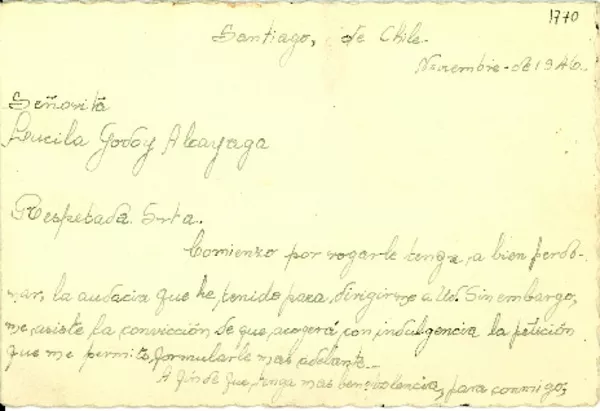 1770
Santiago, de Chile.
Noviembre - de 1946.
Señorita
Lucila Godoy Alcayaga
Respetada Srta.
Comienzo por rogarle tenga, a bien perdo-
nar, la audacia que he, tenido para dirigirme a Ud. Sin embargo,
me, asiste la convicción de que, acogerá, con indulgencia la petición
que me permito, formularle mas adelante.
A fin de que, tenga mas benevolencia, para conmigo,